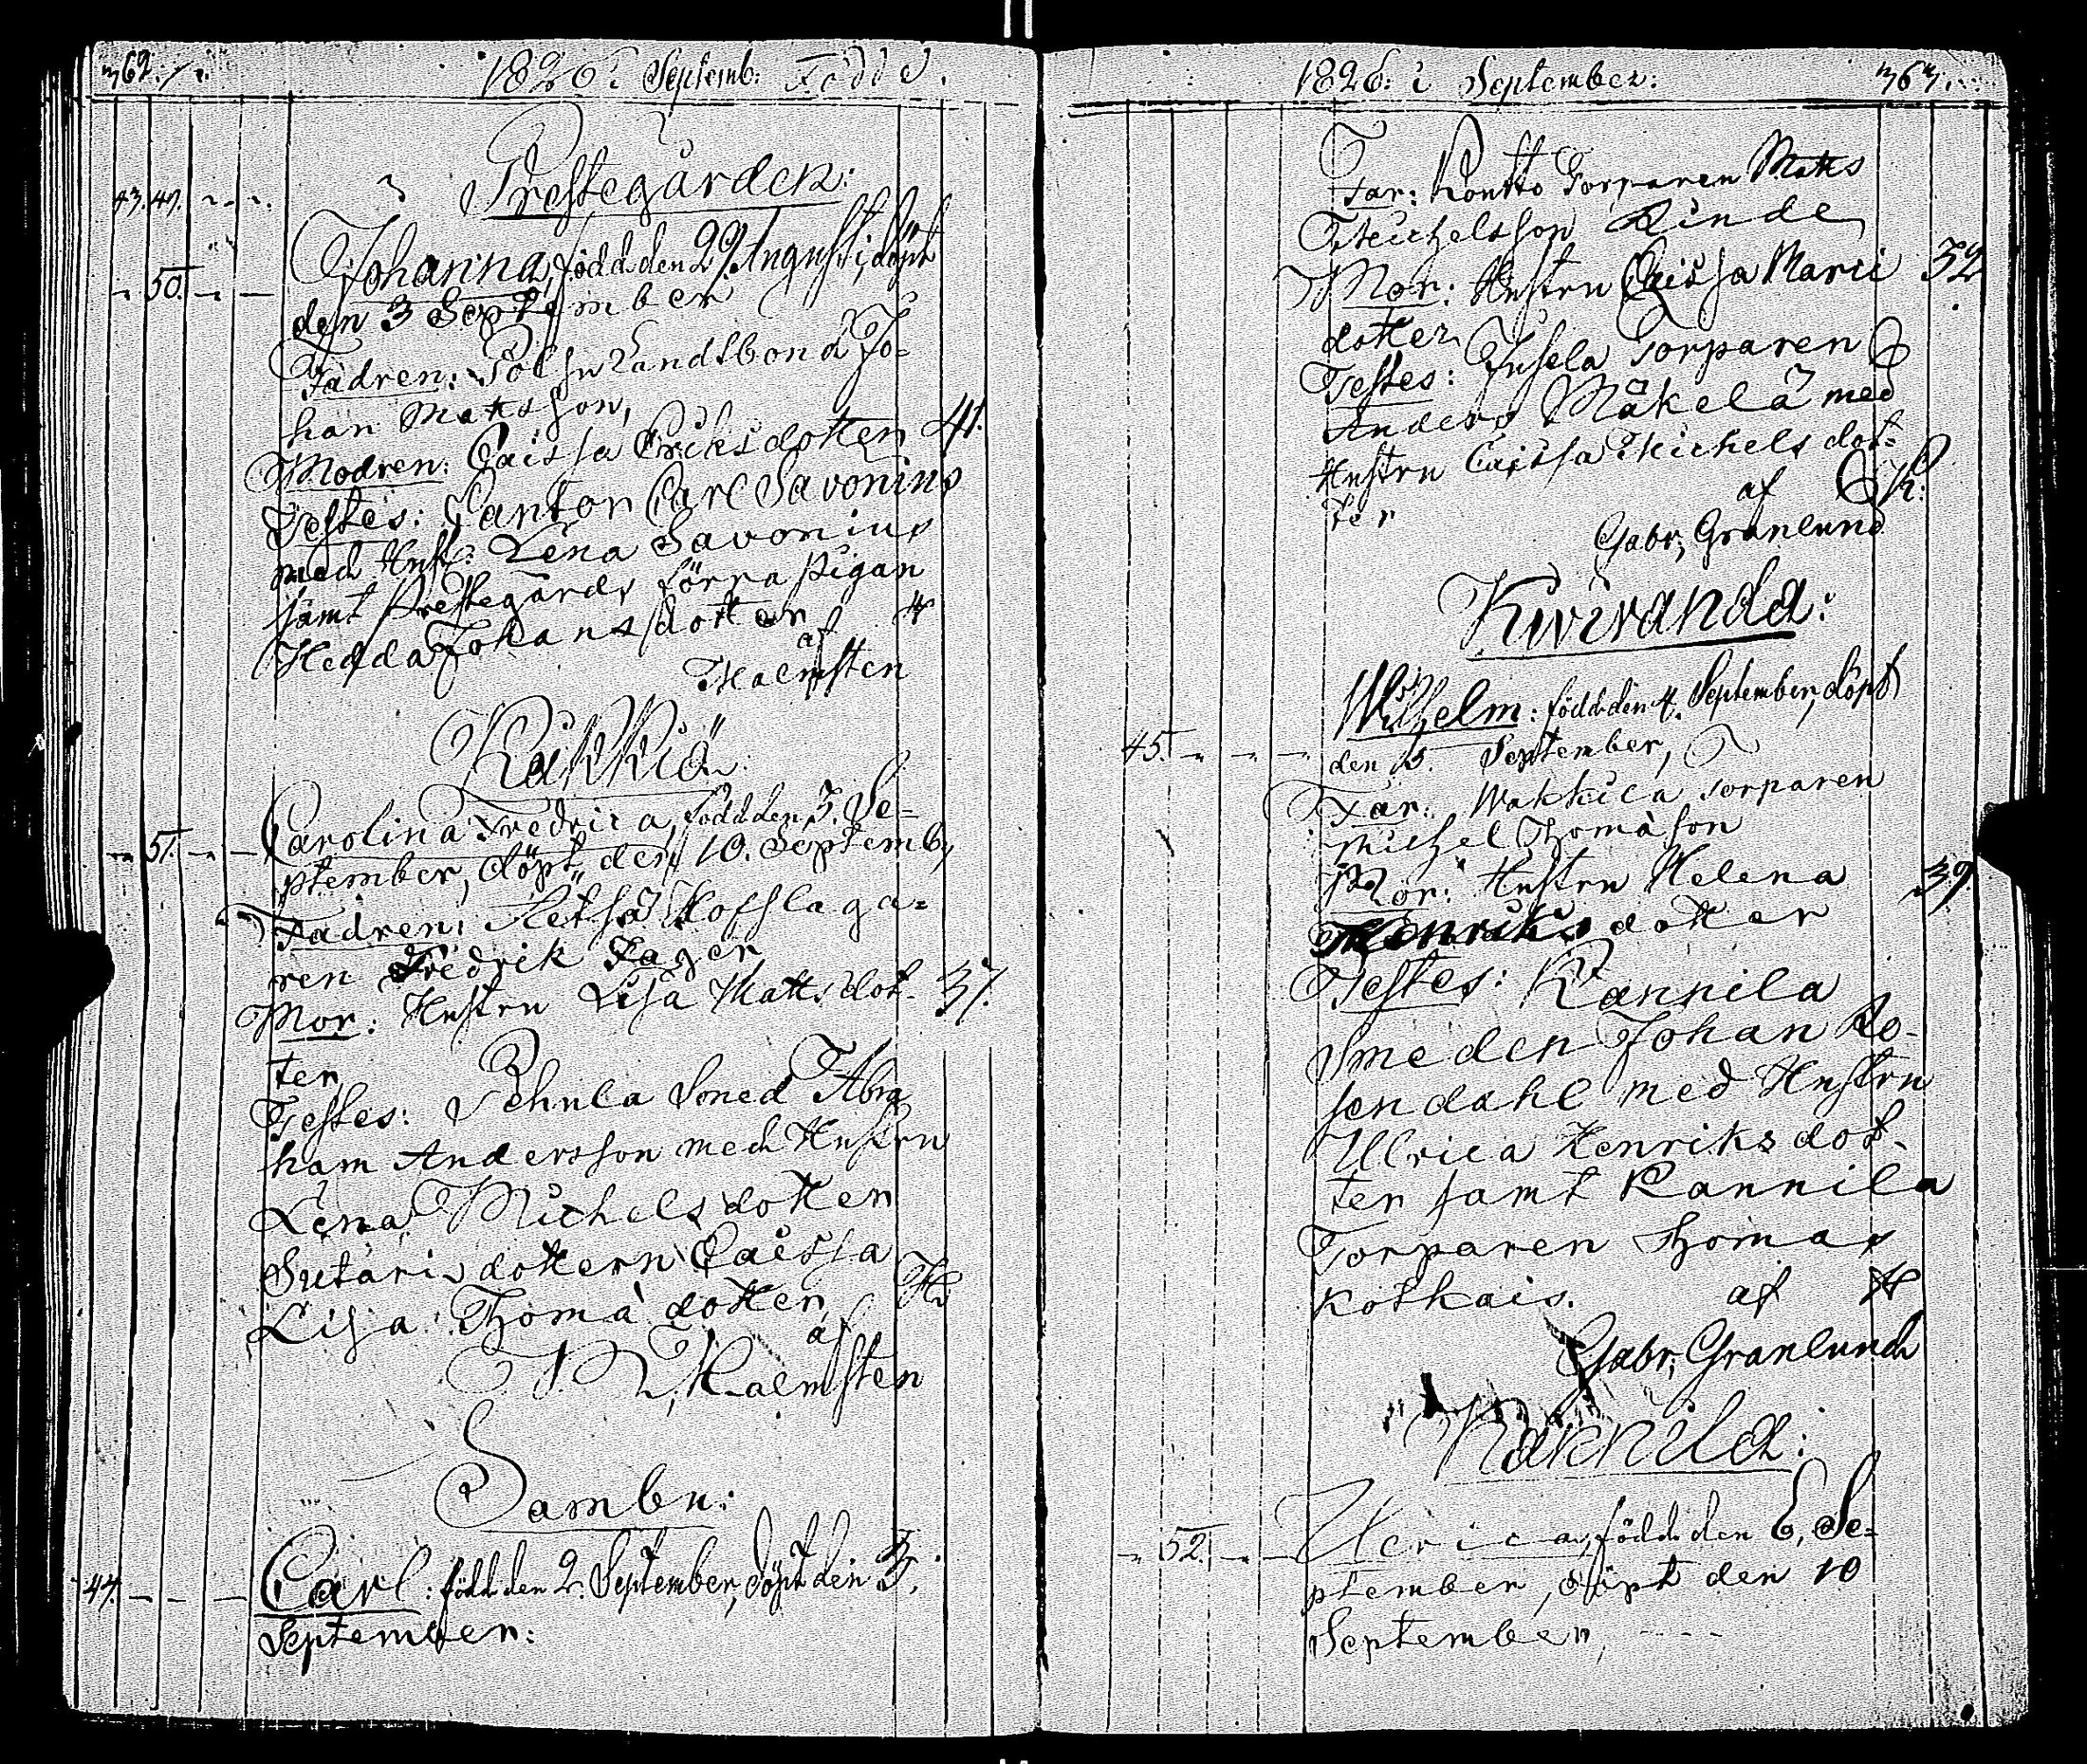 362.
1826 i Septemb: Födde.
Prestegården:
43. 49.
Johanna, född den 29 Augusti, döpt
50.
den 3 September
Fadren: Landtbond Jo-
han Matsson,
Modren: Caissa Ericsdotter 41.
Testes: Cantor Carl Savonius
med Hust: Lena Savonius
samt Prestegårds förra pigan
Hedda Johansdotter
af
Malmsten
Käkkiö
Carolina Fredrica, född den 3. Se-
51.
ptember, döpt den 10. Septemb,
Fadren: Hofslaga-
ren Fredrik Fager
Mor: Hustru Lisa Matts dot- 37.
ter
Testes: Smed Abra
ham Andersson med Hustru
Lena Michelsdotter
dottern Caissa
Lisa Thomä dotter
af
Malmsten
Sambu:
Carl: född den 2. September, döpt den 3.
44.
September:
1826: i September: 363.
Far: Kontto Torparen Matts
Michelsson Rinde
Mor: Hustru Caissa Marci 32
dotter
Testes: Torparen
Anders Mäkelä med
Hustru Caissa Michels dot-
ter af
Gabr; Granlund
Kiviranda:
Wilhelm: född den 4. September, döpt
45.
den 5. September,
Far: Torparen
Michel Thomäson
Mor: Hustru Helena 39.
Henriks dotter
Testes: Kannila
Smeden Johan Ro-
sendahl med Hustru
Ulrica Henriksdot-
ter samt Kannila
Torparen Thomas
Kotkais. af
Gabr; Granlund
Ulrica, född den 6, Se-
52.
ptember, döpt den 10
September,